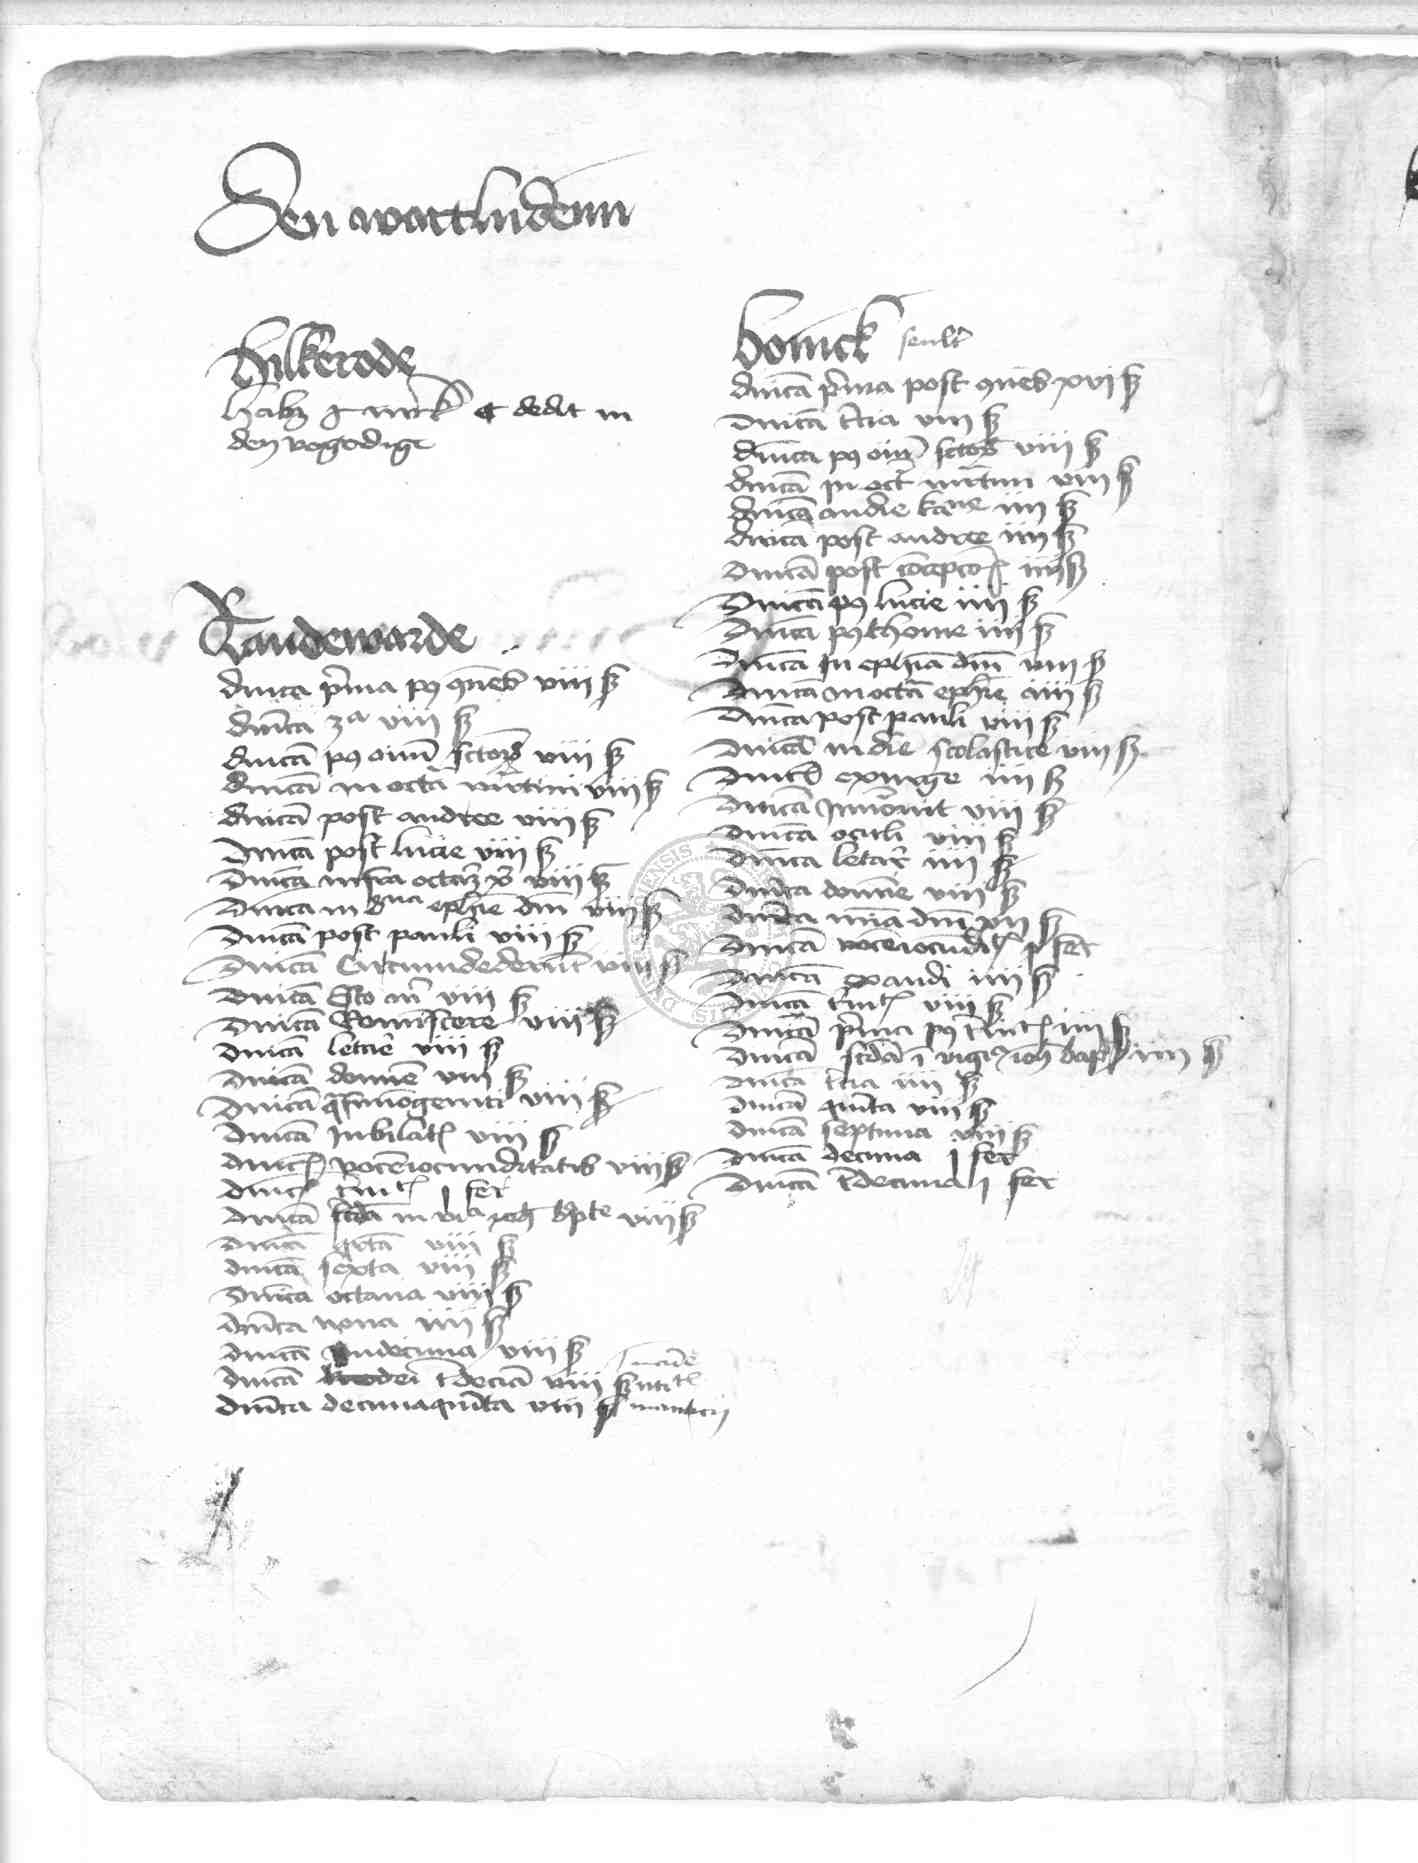 Den wartludenn
Hilkerode
dedit in
den vogedige
Randewarde
dnica pma p9 viii ß
dnica 3a viii ß
dnica p9 oim sctor viii ß
dnica in octa mrtini viii ß
dnica post andree viii ß
dnica post lucie viii ß
dnica infra octa viii ß
dnica in ephie dni viii ß
dnica post pauli viii ß
dnica Circumdederunt viii ß
dnica Esto m viii ß
dnica Reminiscere viii ß
dnica letare viii ß
dnica domine viii ß
dnica qsimogeniti viii ß
dnica Jubilate viii ß
dnica vocemiocunditatis viii ß
dnica trinit j fer
dnica scda in via joh bpte viii ß
dnica qrta viii ß
dnica sexta viii ß
dnica octaua viii ß
dnica nona iiii ß
dnica undecima viii ß
dnica tdecia viii ß
dnica decimaquinta viii ß mauricii
Bonick
dnica prima post xvi ß
dnica tcia viii ß
dnica p9 oim sctor viii ß
dnica in oct mrtini viii ß
dnica an die iiii ß
dnica post andree iiii ß
dnica post concepco iiii ß
dnica p9 lucie iiii ß
dnica p9 thome iiii ß
dnica in ephia dni viii ß
dnica in octa ephie iiii ß
dnica post pauli viii ß
dnica in die scolastice viii ß
dnica exurge iiii ß
dnica Inuocuit viii ß
dnica oculi viii ß
dnica letar iiii ß
dnica domine viii ß
dnica mia dni xii ß
dnica vocemiocundit j fer
dnica exaudi iiii ß
dnica trinit viii ß
dnica prima p9 trinit iiii ß
dnica scda i vig joh bap iiii ß
dnica tcia iiii ß
dnica quinta viii ß
dnica septima viii ß
dnica decima j fer
dnica tdecima j fer